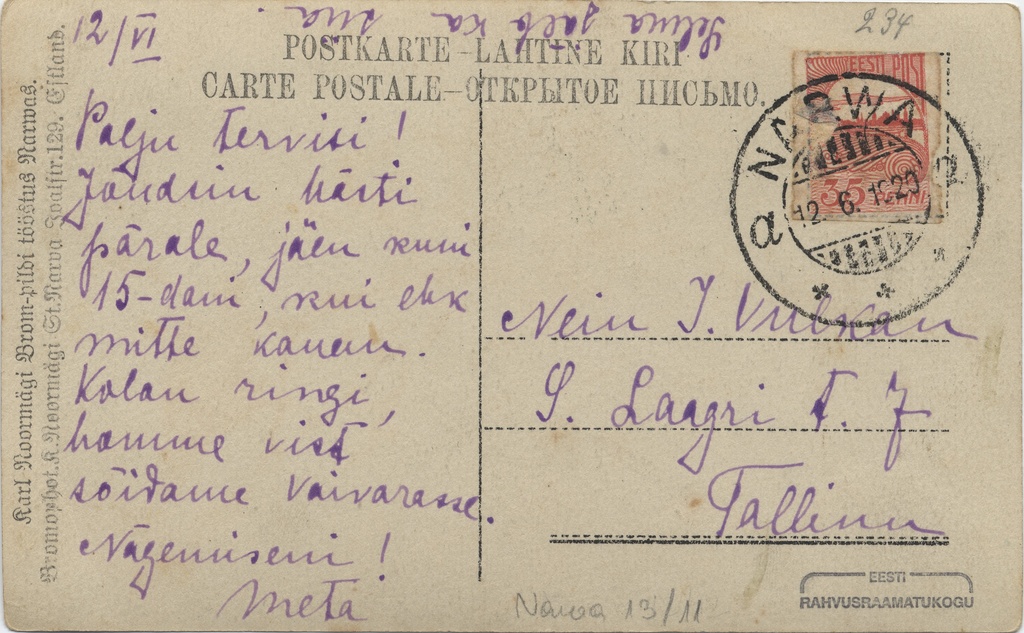 234
12/VI
Selma ka siia.
POSTKARTE–LAHTINE KIRI
CARTE POSTALE–ОТКРЫТОЕ ПИСЬМО.
EESTI POST
35
NARWA
a a
12. 6. 1923
Palju tervisi!
Jõudsin hästi
pärale, jäen kuni
15-dani, kui ehk
mitte kauem.
Kolan ringi,
homme vist
sõidame Vaivarasse.
Nägemiseni!
Meta
Nein J. Vulkan
S. Laagri t. 7
Tallinn
Karl Noormägi Brom-pildi tööstus Narwas.
Bromophot. K. Noormägi St. Narva Joalstr. 129. Estland.
Narva 13/11
EESTI
RAHVUSRAAMATUKOGU